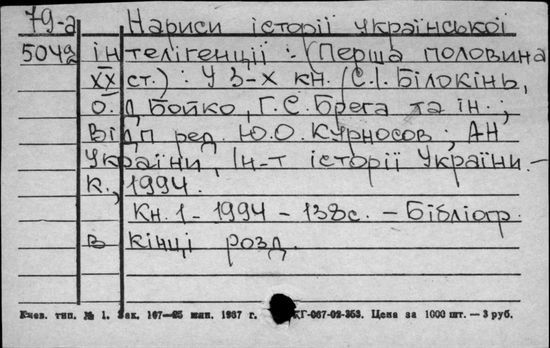 79-а Нариси історії української
5049 інтелігенції : (Перша половина
XX ст.) : У 3-х кн. (С.І. Білокінь,
О. Д Бойко, Г.С. Брега та ін. ;
Відп ред. Ю.О. Курносов ; АН
України, Ін-т історії України. -
К., 1994.
Кн. 1 - 1994 - 138с. - Бібліогр.
в кінці розд.
Киев. тип. № 1. Зак. 107—25 мил. 1987 г. КГ-067-02-353. Цена за 1000 шт. — 3 руб.